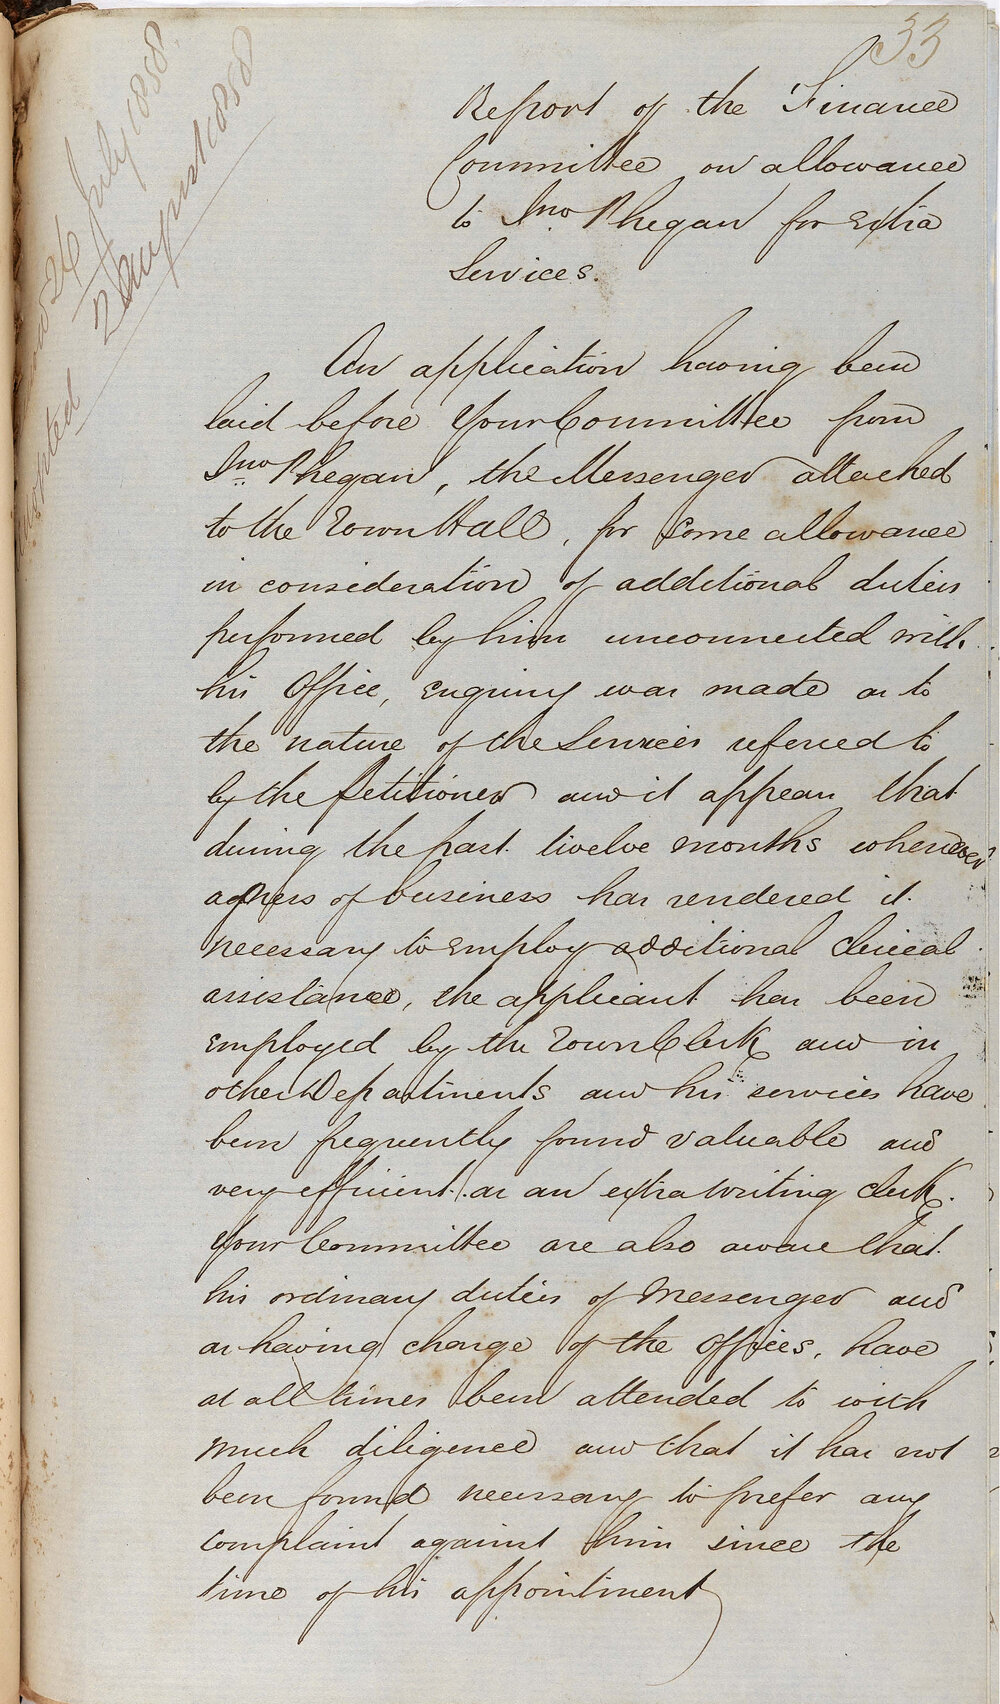 33
26 July 1858
Adopted 2 August 1858
Report of the Finance
Committee on allowance
to Jno. Phegan for Extra
Services.
An application having been
laid before Your Committee from
Jno. Phegan, the Messenger attached
to the Town Hall, for some allowance
in consideration of additional duties
performed by him unconnected with
his Office, Enquiry was made as to
the nature of the Services referred to
by the Petitioner and it appears that
during the past twelve months whenever
a press of business has rendered it
necessary to employ additional Clerical
assistance, the applicant has been
Employed by the Town Clerk and in
other Departments and his services have
been frequently found valuable and
very efficient as an extra writing Clerk.
Your Committee are also aware that
his ordinary duties of Messenger and
as having charge of the Offices, have
at all times been attended to with
much diligence and that it has not
been found necessary to prefer any
complaint against him since the
time of his appointment